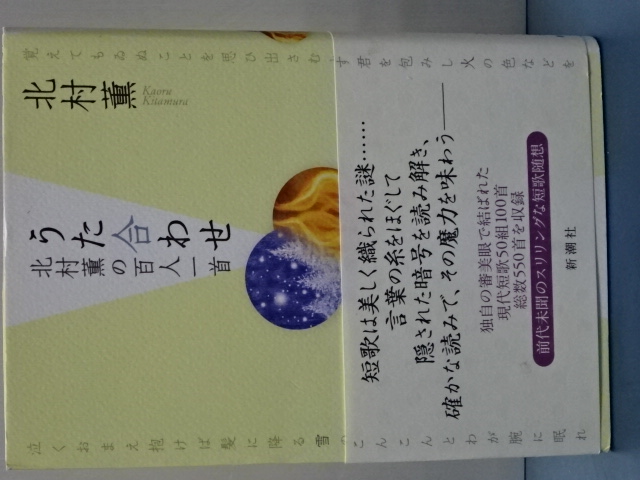 覚えてもゐぬことを思ひ出さむす君を包みし火の色などを
北村薫
Kaoru
Kitamura
うた合わせ
北村薫の百人一首
短歌は美しく織られた謎……
言葉の糸をほぐして
隠された暗号を読み解き、
確かな読みで、その魔力を味わう――
独自の審美眼で結ばれた
現代短歌50組100首
総数550首を収録
前代未聞のスリリングな短歌随想
新潮社
泣くおまえ抱けば髪に降る雪のこんこんとわが腕に眠れ